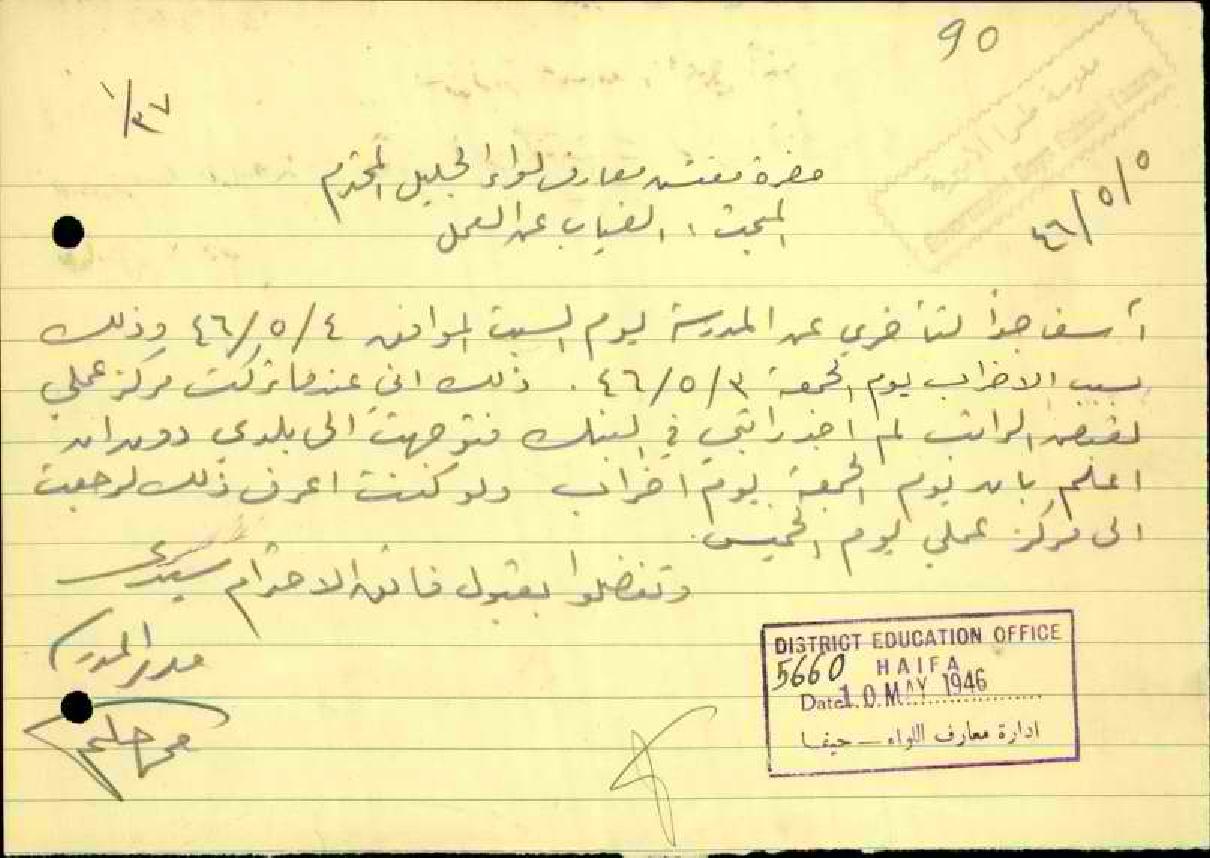 90
١/٣٧
٤٦/٥/٥
حضرة مفتش معارف لواء الجليل المحترم
المبحث : الغياب عن العمل
أسف جداً لتأخري عن المدرسة يوم السبت الموافق ٤٦/٥/٤ وذلك
بسبب الاضراب يوم الجمعة ٤٦/٥/٣ . ذلك اني عندما تركت مركز عملي
لقبض الراتب لم اجد راتبي في البنك فتوجهت الى بلدي دون ان
اعلم بان يوم الجمعة يوم اضراب ولو كنت اعرف ذلك لرجعت
الى مركز عملي يوم الخميس.
وتفضلوا بقبول فائق الاحترام سيدي
مدير المدرسة
DISTRICT EDUCATION OFFICE
5660 HAIFA
Date 10 MAY 1946
ادارة معارف اللواء — حيفا